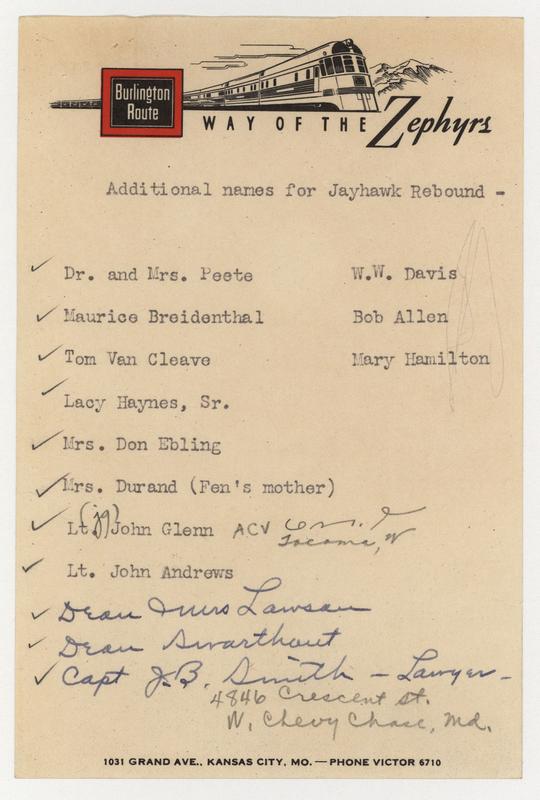 Burlington
Route
WAY OF THE Zephyrs
Additional names for Jayhawk Rebound -
Dr. and Mrs. Peete
W.W. Davis
Maurice Breidenthal
Bob Allen
Tom Van Cleave
Mary Hamilton
Lacy Haynes, Sr.
Mrs. Don Ebling
Mrs. Durand (Fen's mother)
Lt. (jg) John Glenn ACV
Tacoma, W
Lt. John Andrews
Dean & Mrs Lawson
Dean Swarthout
Capt J.B. Smith - Lawyer -
4846 Crescent St.
N. Chevy Chase, Md.
1031 GRAND AVE., KANSAS CITY, MO. — PHONE VICTOR 6710